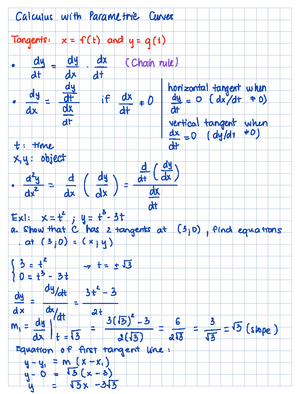 Calculus with Parametric Curves
Tangents: x = f(t) and y = g(t)
• dy/dt = dy/dx · dx/dt (Chain rule)
• dy/dx = (dy/dt)/(dx/dt) if dx/dt ≠ 0
horizontal tangent when
dy/dt = 0 (dx/dt ≠ 0)
vertical tangent when
dx/dt = 0 (dy/dt ≠ 0)
t : time
x, y : object
• d²y/dx² = d/dx (dy/dx) = (d/dt (dy/dx))/(dx/dt)
Ex1: x = t² ; y = t³ - 3t
a. Show that C has 2 tangents at (3,0), find equations
at (3,0) = (x, y)
{ 3 = t² → t = ± √3
{ 0 = t³ - 3t
dy/dx = (dy/dt)/(dx/dt) = (3t² - 3)/(2t)
m₁ = dy/dx | t = √3 = (3(√3)² - 3)/(2(√3)) = 6/(2√3) = 3/√3 = √3 (slope)
Equation of first tangent line :
y - y₁ = m (x - x₁)
y - 0 = √3 (x - 3)
y = √3x - 3√3